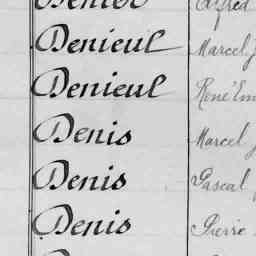 Denieul Marcel
Denieul René Em
Denis Marcel
Denis Pascal
Denis Pierre